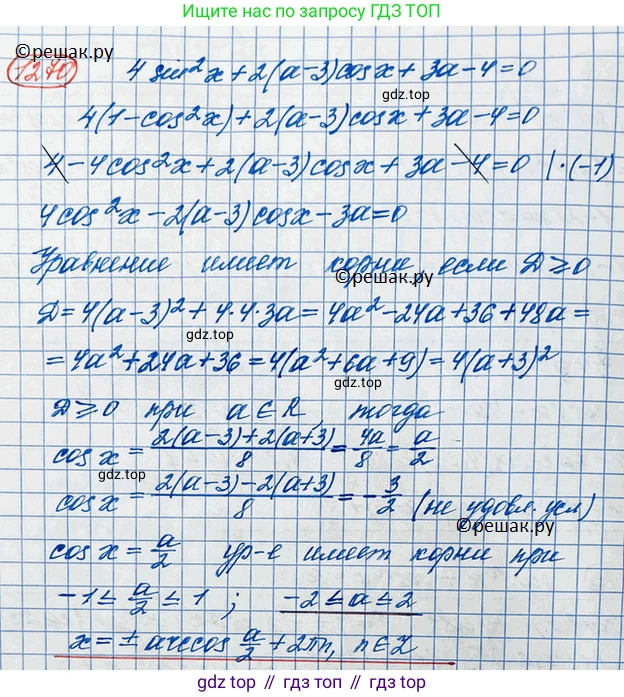 Ищите ответ по запросу ГДЗ ТОП
©решак.ру
1270 4 sin²x + 2(a-3)cosx + 3a-4=0
gdz.top
4(1-cos²x) + 2(a-3)cosx + 3a-4=0
4 - 4cos²x + 2(a-3)cosx + 3a - 4 = 0 | · (-1)
4cos²x - 2(a-3)cosx - 3a=0
Уравнение имеет корни, если D ≥ 0
©решак.ру
D = 4(a-3)² + 4·4·3a = 4a² - 24a + 36 + 48a =
gdz.top
= 4a² + 24a + 36 = 4(a² + 6a + 9) = 4(a+3)²
D ≥ 0 при a ∈ R, тогда
gdz.top
cos x = (2(a-3) + 2(a+3))/8 = 4a/8 = a/2
cos x = (2(a-3) - 2(a+3))/8 = -3/2 (не удовл. усл)
©решак.ру
cos x = a/2 ур-е имеет корни при
gdz.top
-1 ≤ a/2 ≤ 1 ; -2 ≤ a ≤ 2
x = ± arccos a/2 + 2πn, n ∈ Z
gdz top // гдз топ // gdz top